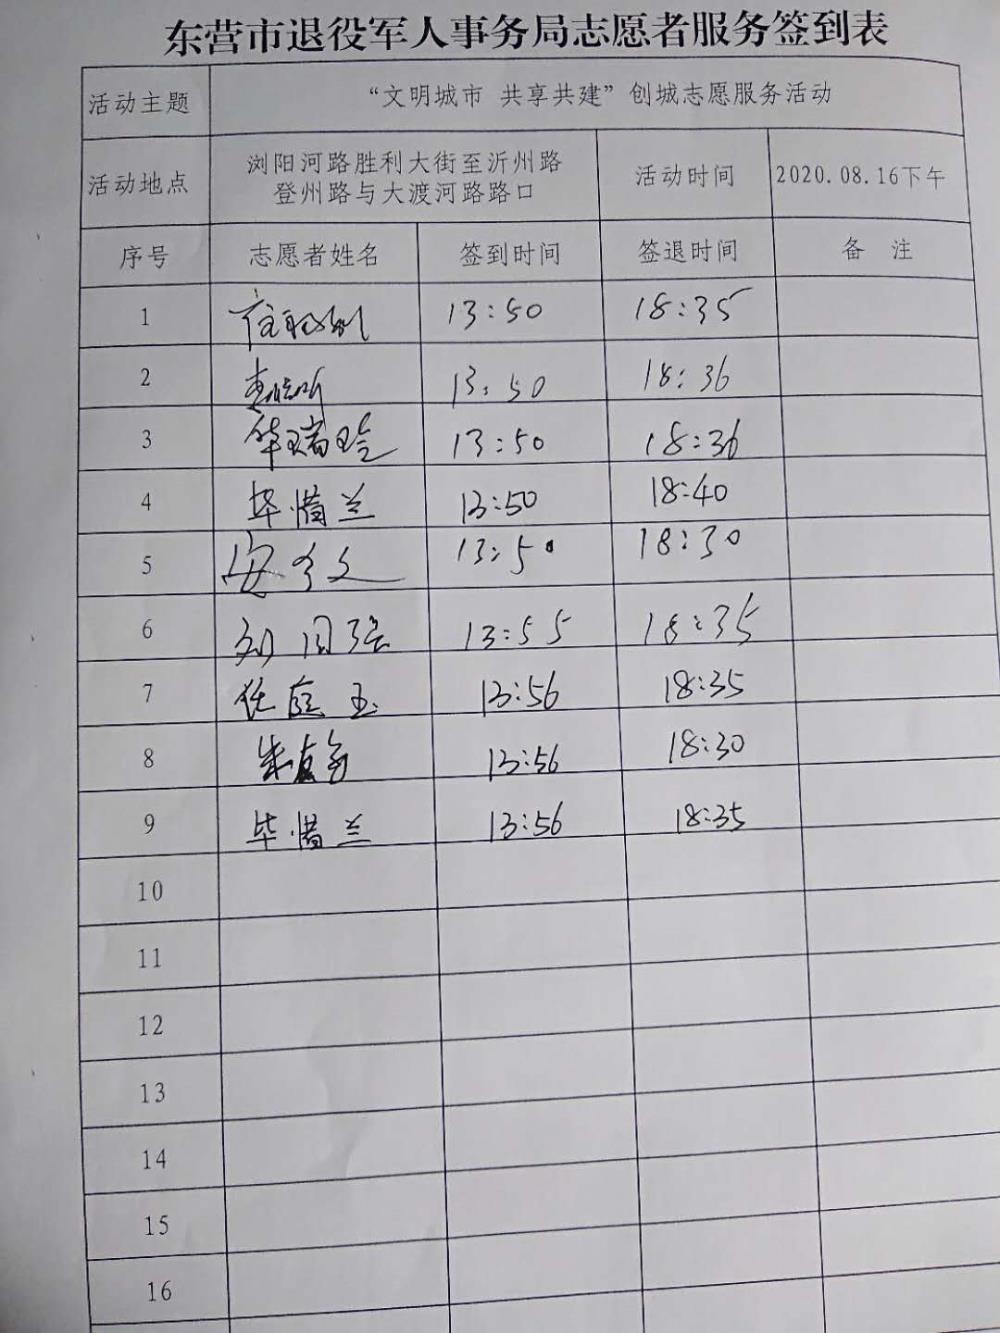 东营市退役军人事务局志愿者服务签到表
活动主题 “文明城市 共享共建”创城志愿服务活动
活动地点 浏阳河路胜利大街至沂州路 活动时间 2020.08.16下午
登州路与大渡河路路口
序号 志愿者姓名 签到时间 签退时间 备 注
1 13:50 18:35
2 13:50 18:36
3 华瑞玲 13:50 18:36
4 毕惜兰 13:50 18:40
5 13:50 18:30
6 刘同强 13:55 18:35
7 任庭玉 13:56 18:35
8 朱 13:56 18:30
9 毕惜兰 13:56 18:35
10
11
12
13
14
15
16